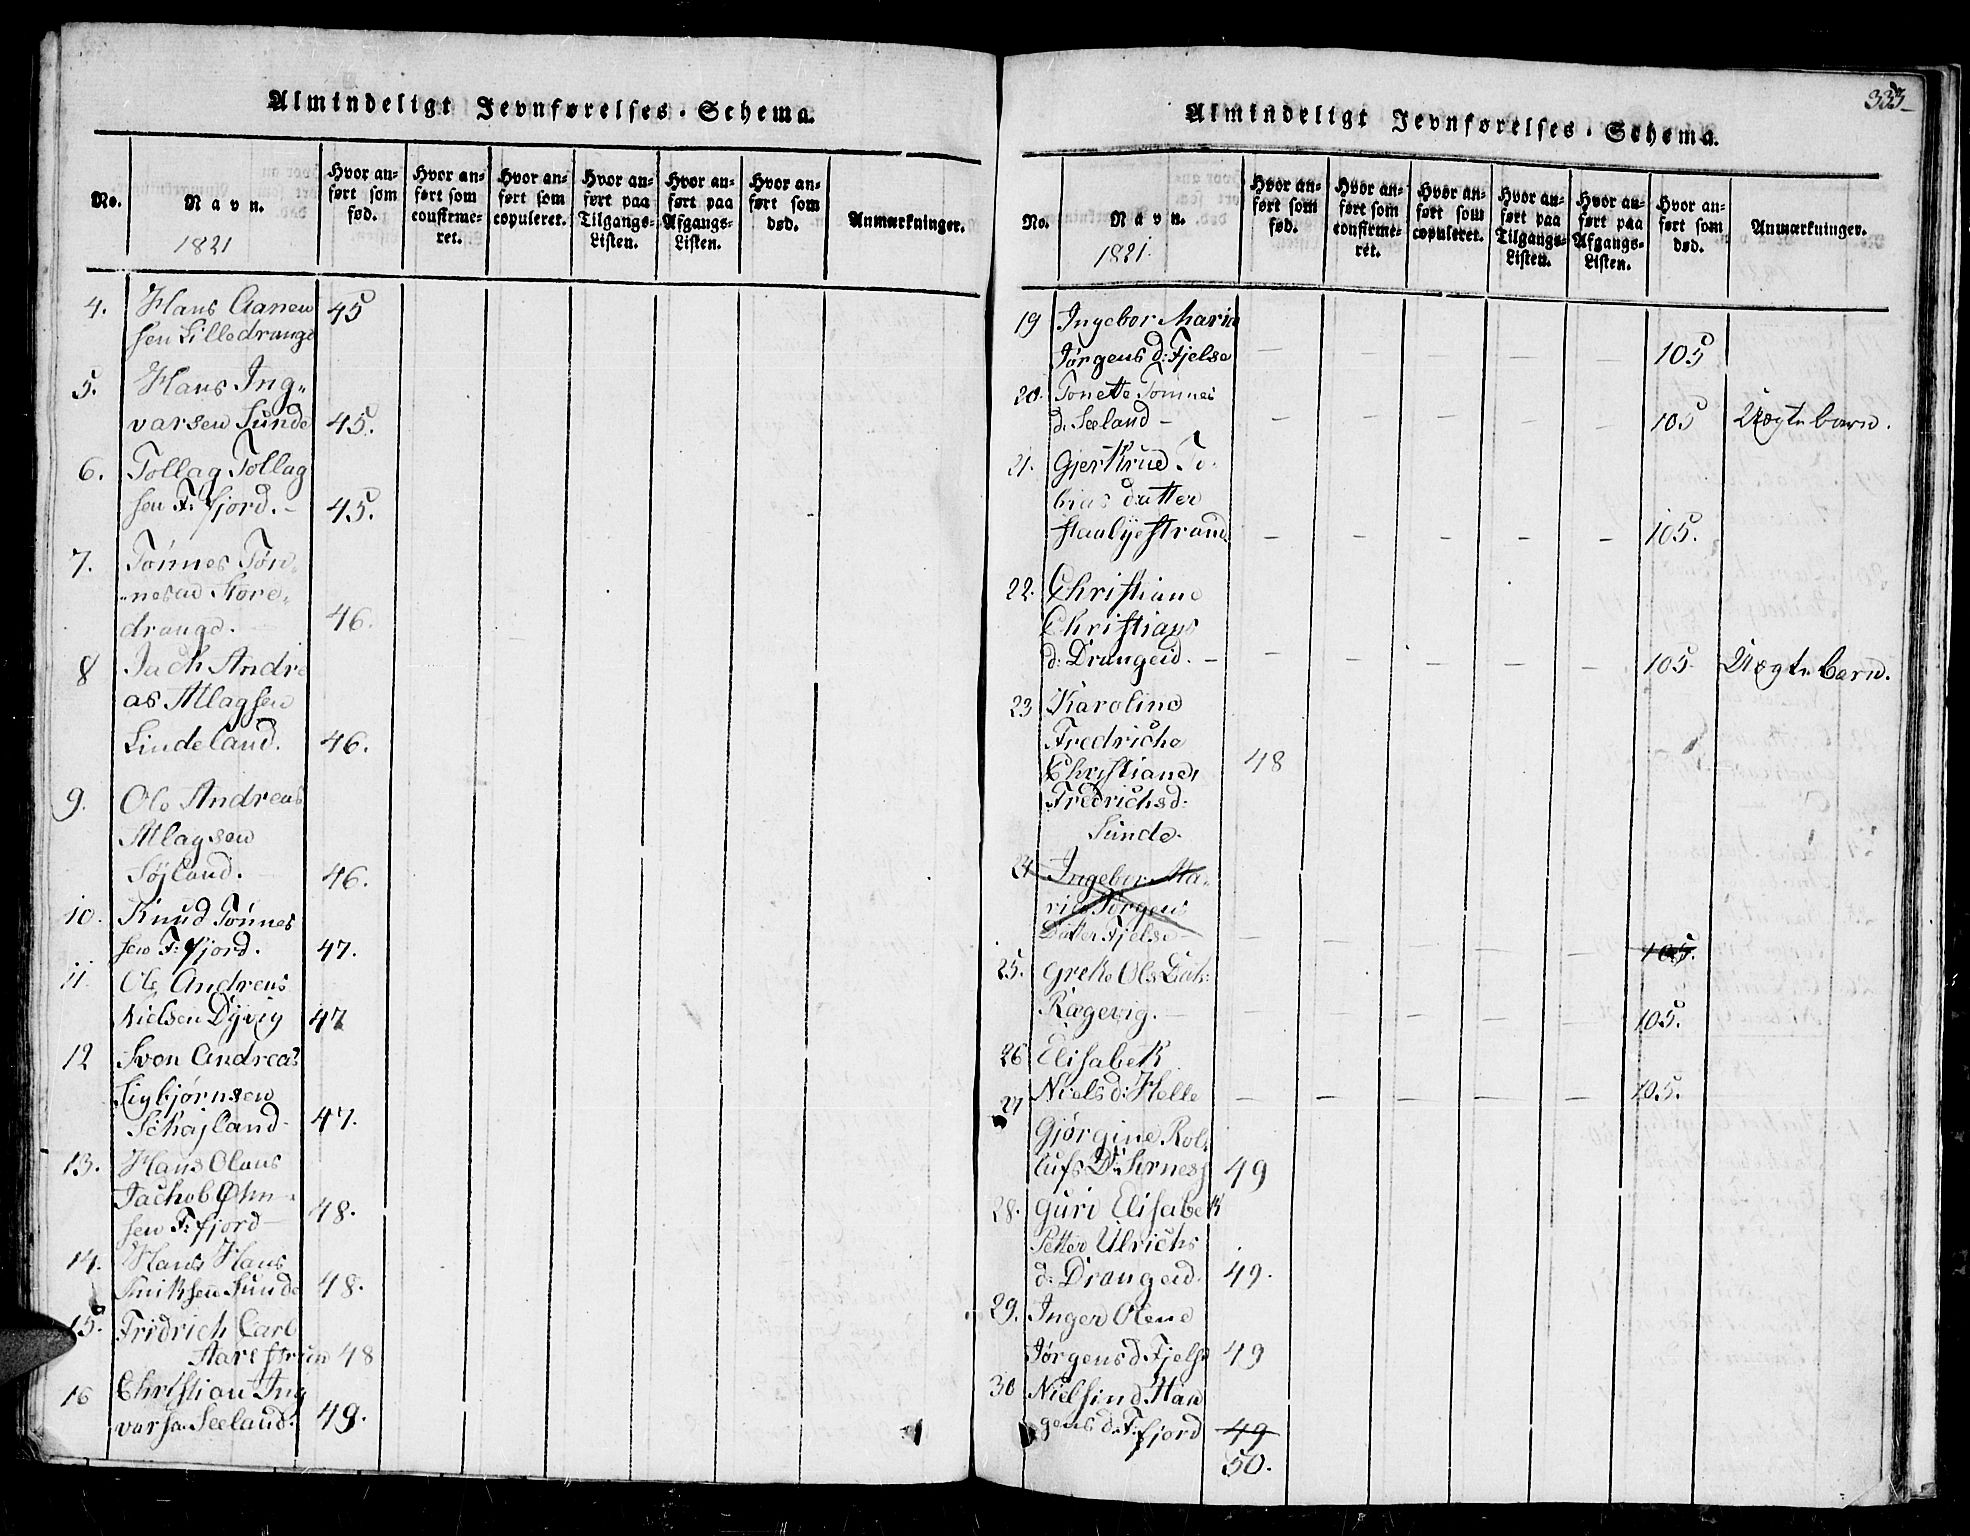 Almindeligt Jevnførelses-Schema.
No.
Navn.
1821
Hvor anført som fød.
Hvor anført som confirmeret.
Hvor anført som copuleret.
Hvor anført paa Tilgangs-Listen.
Hvor anført paa Afgangs-Listen.
Hvor anført som død.
Anmærkninger.
4. Hans Aanen
sen Lilledrange 45
5. Hans Ing„
varsen Sunde 45.
6. Tollag Tollag
sen F: fjord. – 45.
7. Tönnes Tøn„
„nesen Store„
drange. 46.
8 Jach Andre
as Atlagsen
Lindeland. 46.
9. Ole Andreas
Atlagsen
Söjland. 46.
10. Knud Tönnes
sen F: fjord. 47.
11. Ole Andreas
Nielsen Dÿvig 47
12 Sven Andreas
Sigbjørnsen
47.
13. Hans Olaus
Jachob Ohn
sen F: fjord – 48.
14. Hans Hans
Sunde 48.
15. Fridrich Carl
48
16 Christian Ing
varsen Seeland. 49.
Almindeligt Jevnførelses-Schema.
333
No.
Navn.
1821.
Hvor anført som fød.
Hvor anført som confirmeret.
Hvor anført som copuleret.
Hvor anført paa Tilgangs-Listen.
Hvor anført paa Afgangs-Listen.
Hvor anført som død.
Anmærkninger.
19 Ingebor Maria
Jørgens d: Fjelse – – – 105
20. Tonette Tönnes
d. Seeland – – – – – – 105 Uægte barn.
21. Gjertrud To„
bias datter
– – – – – 105.
22. Christiane
Christians
d: Drangeid. – – – – – – 105 Uægte barn.
23 Karoline
Fredricha
Christiane 48
Fredrichsd:
Sunde.
24 Ingebor Ma„
ria Jørgens
Datter Fjelse – – – – – 105.
25. Grete Ols Dat:
Rægevig. – – – – – 105.
26 Elisabet
Niels d: Helle – – – – – 105.
27
Gjørgine Rol„
lufs D: Sirnes 49
28. Guri Elisabet
Petter Ulrichs
d: Drangeid. 49.
29. Inger Olene
Jørgens d. Fjelse 49
30 Nielsine Han
gens d. F: fjord 49
50.